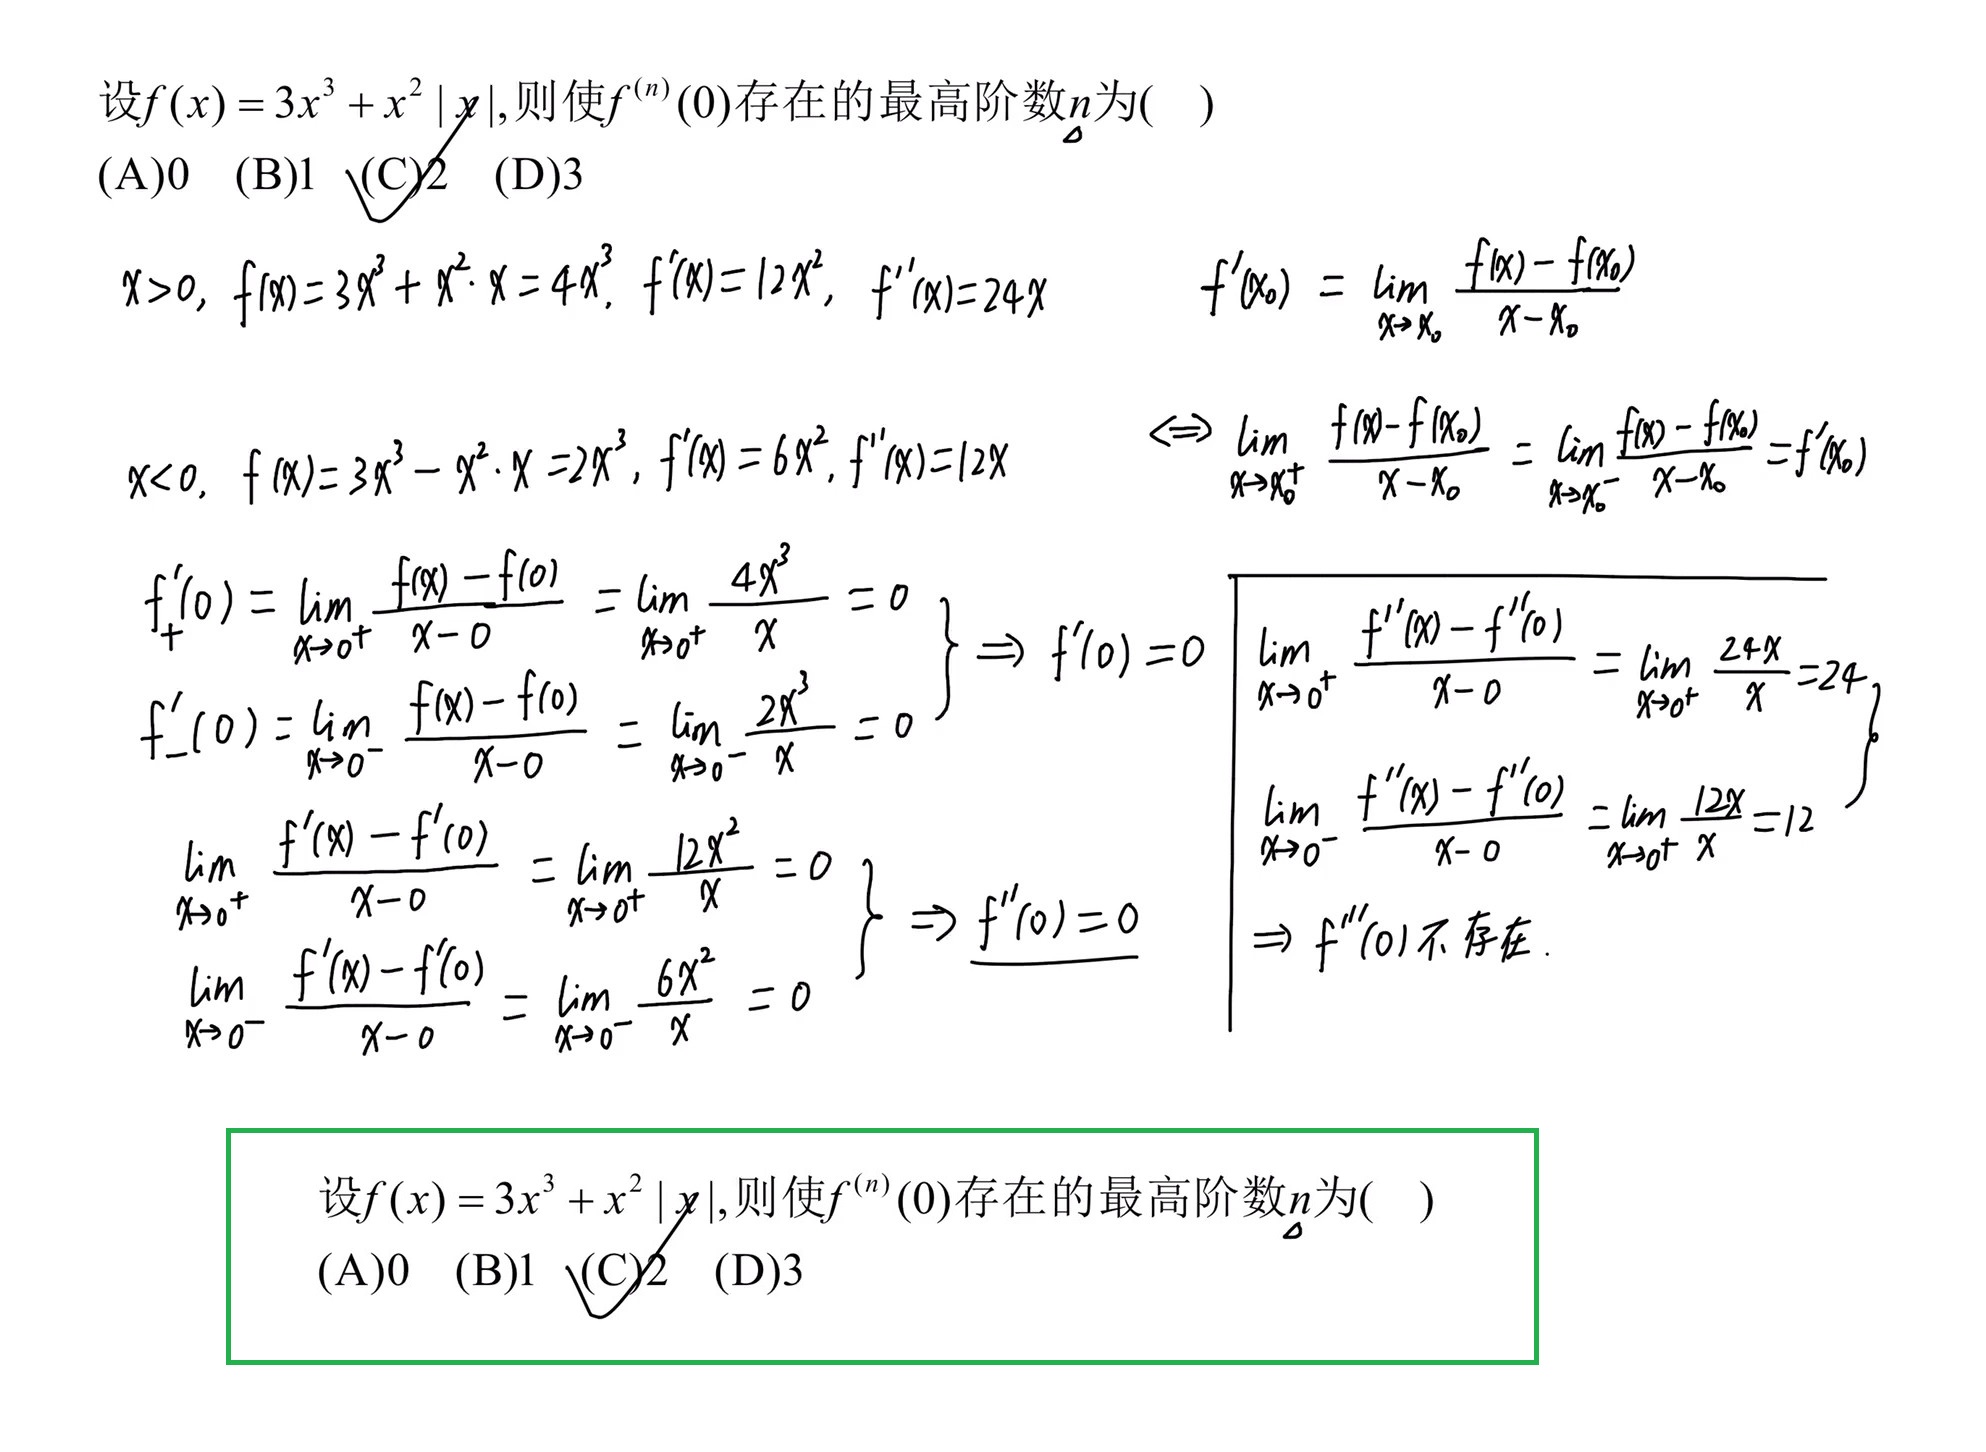 设f(x)=3x³+x²|x|,则使f⁽ⁿ⁾(0)存在的最高阶数n为( )
(A)0 (B)1 (C)2 (D)3
x>0, f(x)=3x³+x²·x=4x³, f'(x)=12x², f''(x)=24x
f'(x₀) = lim x→x₀ (f(x)-f(x₀))/(x-x₀)
x<0, f(x)=3x³-x²·x=2x³, f'(x)=6x², f''(x)=12x
⇔ lim x→x₀⁺ (f(x)-f(x₀))/(x-x₀) = lim x→x₀⁻ (f(x)-f(x₀))/(x-x₀) = f'(x₀)
f₊'(0) = lim x→0⁺ (f(x)-f(0))/(x-0) = lim x→0⁺ 4x³/x = 0
f₋'(0) = lim x→0⁻ (f(x)-f(0))/(x-0) = lim x→0⁻ 2x³/x = 0
} ⇒ f'(0)=0
lim x→0⁺ (f'(x)-f'(0))/(x-0) = lim x→0⁺ 12x²/x = 0
lim x→0⁻ (f'(x)-f'(0))/(x-0) = lim x→0⁻ 6x²/x = 0
} ⇒ f''(0)=0
lim x→0⁺ (f''(x)-f''(0))/(x-0) = lim x→0⁺ 24x/x =24
lim x→0⁻ (f''(x)-f''(0))/(x-0) = lim x→0⁺ 12x/x =12
}
⇒ f'''(0)不存在.
设f(x)=3x³+x²|x|,则使f⁽ⁿ⁾(0)存在的最高阶数n为( )
(A)0 (B)1 (C)2 (D)3